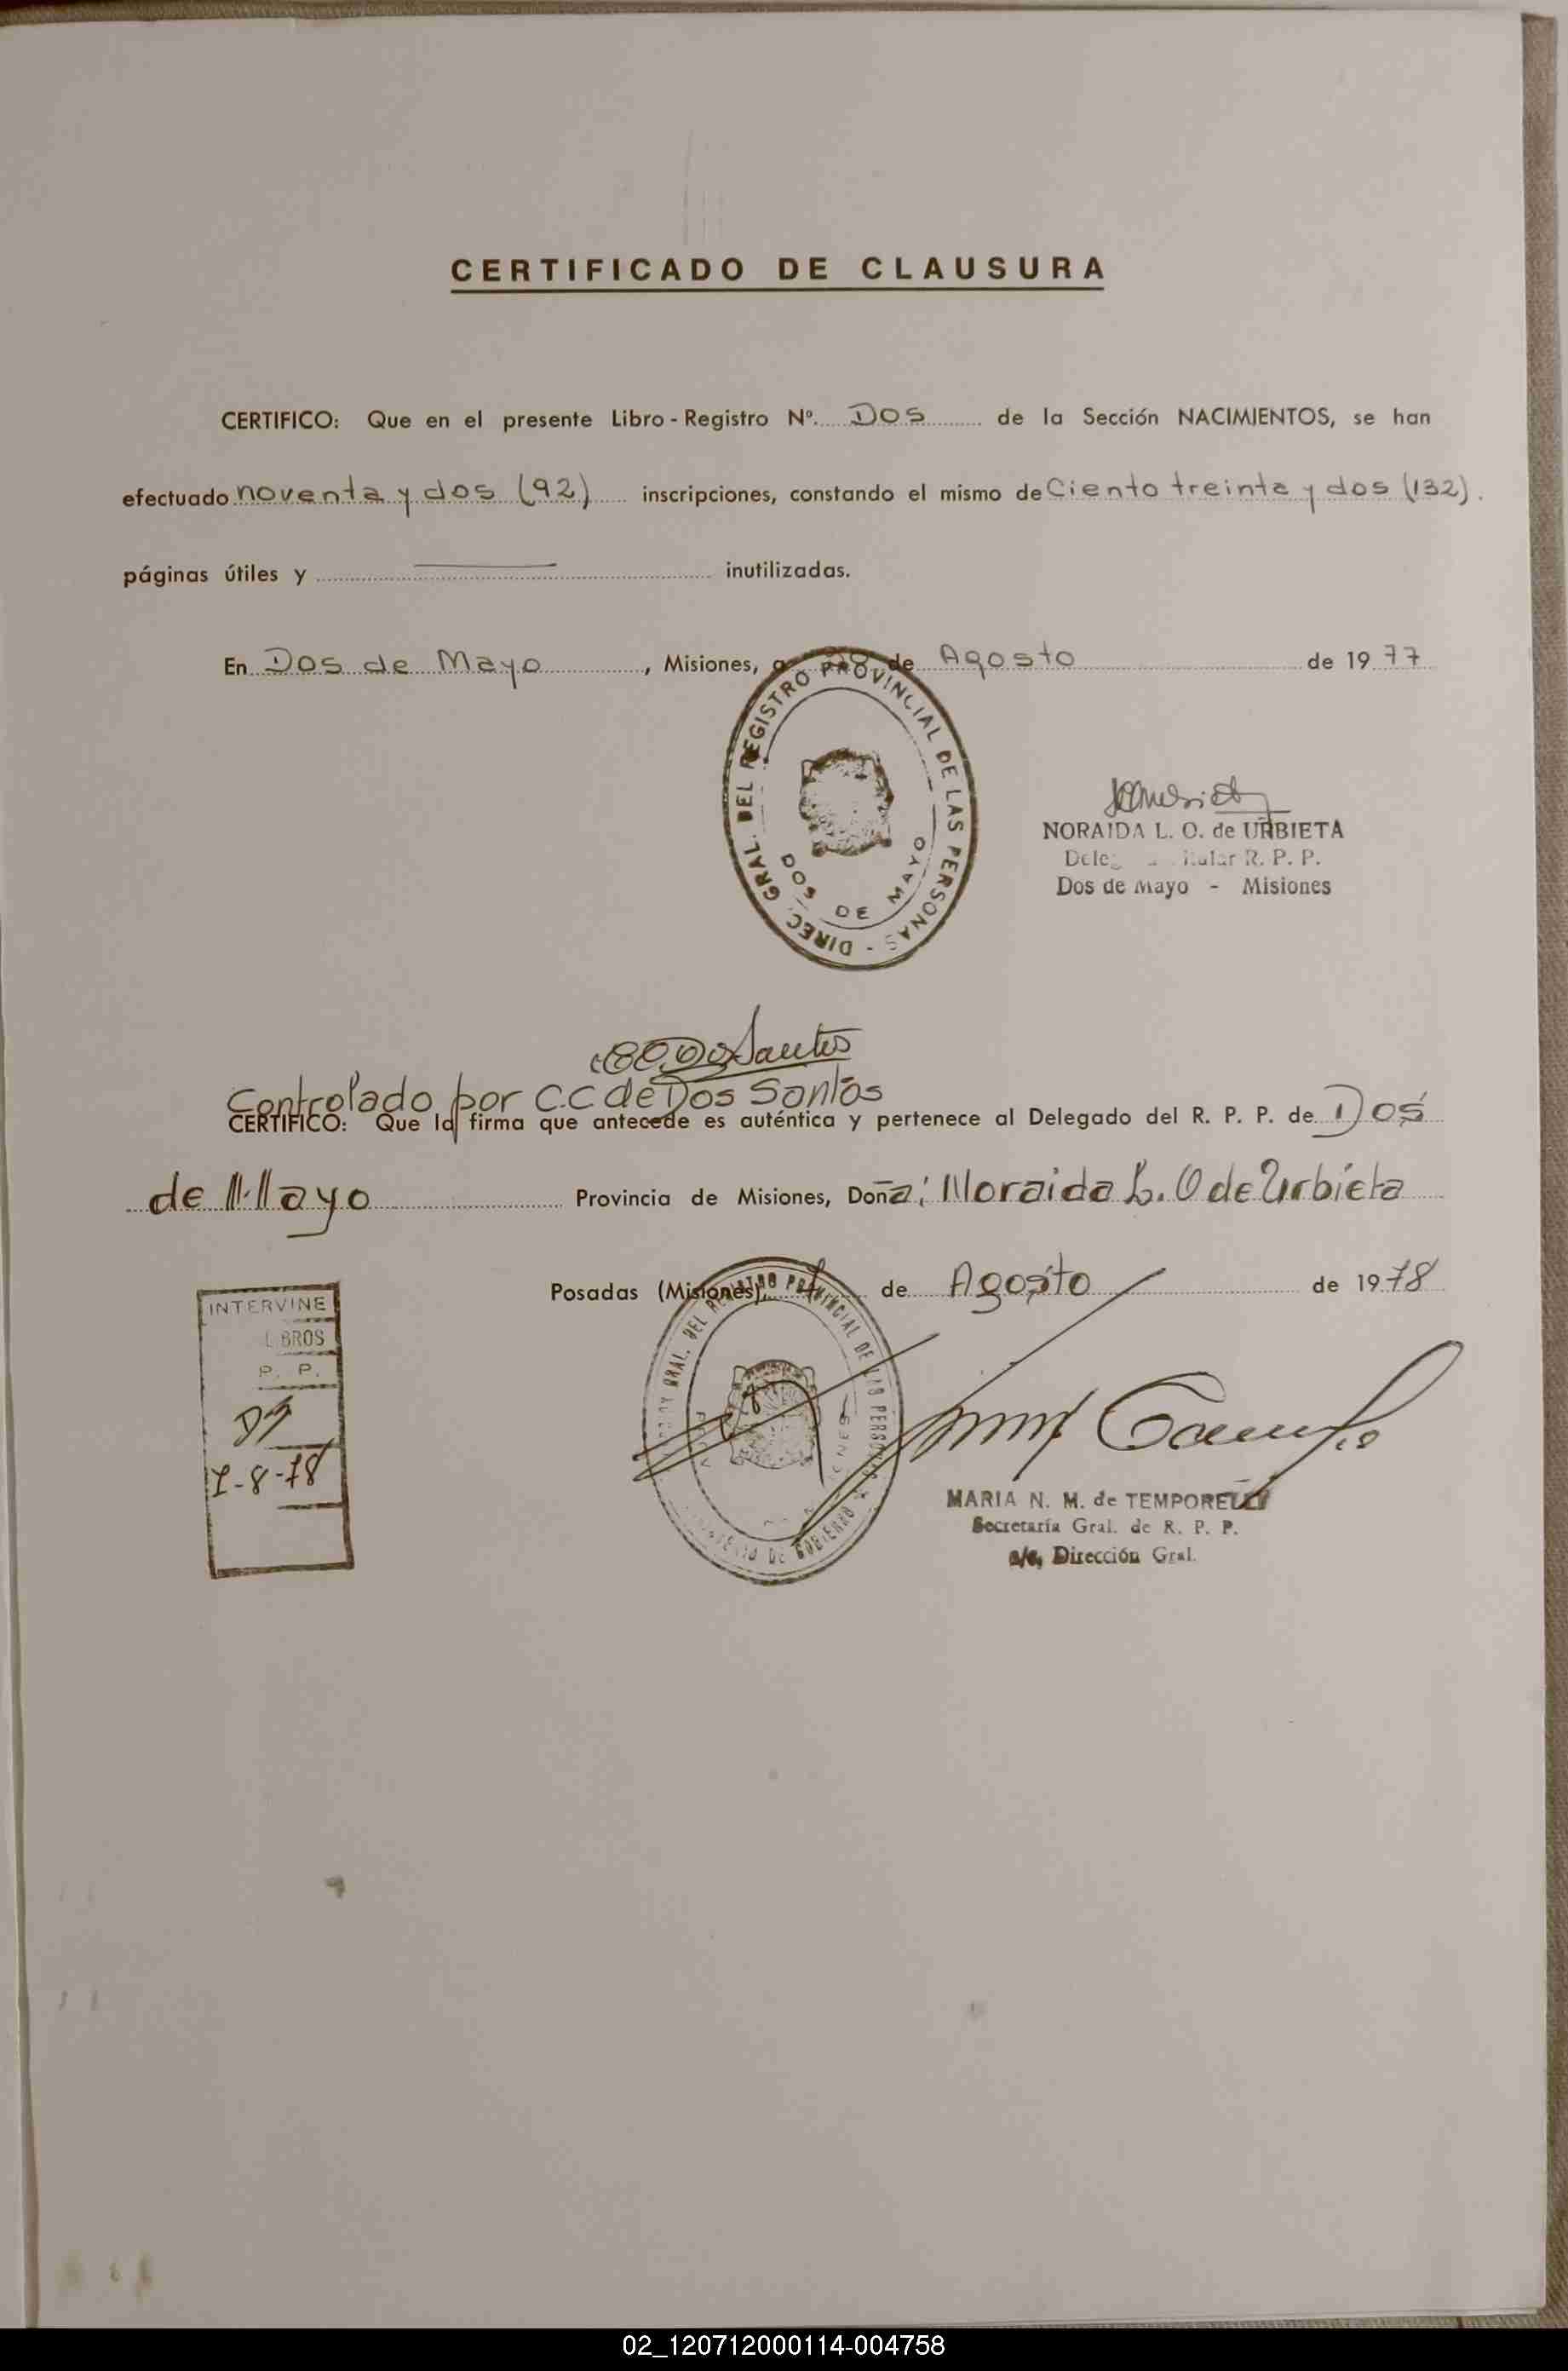 CERTIFICADO DE CLAUSURA
CERTIFICO: Que en el presente Libro - Registro Nº. Dos de la Sección NACIMIENTOS, se han
efectuado noventa y dos (92) inscripciones, constando el mismo de Ciento treinta y dos (132).
páginas útiles y inutilizadas.
En Dos de Mayo, Misiones, a 28 de Agosto de 1977
DIREC. GRAL. DEL REGISTRO PROVINCIAL DE LAS PERSONAS -
DOS DE MAYO
NORAIDA L. O. de URBIETA
R. P. P.
Dos de Mayo - Misiones
Dos Santos
Controlado por C.C de Dos Santos
CERTIFICO: Que la firma que antecede es auténtica y pertenece al Delegado del R. P. P. de Dos
de Mayo Provincia de Misiones, Doña: Noraida L. O de Urbieta
Posadas (Misiones), 1 de Agosto de 1978
GRAL. DEL REGISTRO PROVINCIAL DE LAS PERSONAS
DE GOBIERNO
INTERVINE
LIBROS
P. P.
1-8-78
MARIA N. M. de TEMPORELLI
Secretaría Gral. de R. P. P.
a/c. Dirección Gral.
02_120712000114-004758